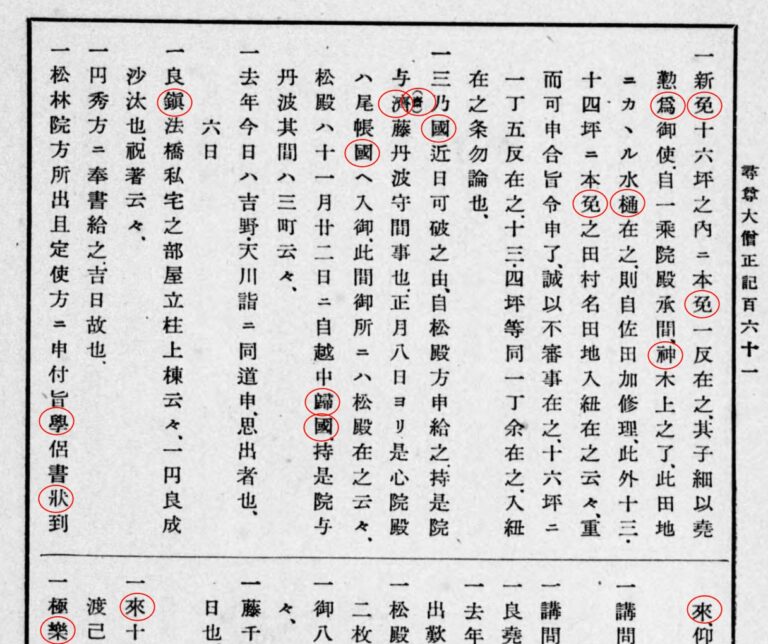 尋尊大僧正記百六十一
一新免十六坪之內ニ本免一反在之、其子細以堯
懃爲御使、自一乘院殿承間、神木上之了、此田地
ニカヽル水樋在之、則自佐田加修理、此外十三・
十四坪ニ本免之田村名田地入紐在之云々、重
而可申合旨令申了、誠以不審事在之、十六坪ニ
一丁五反在之、十三、四坪等同一丁余在之、入紐
在之条勿論也、
一三乃國近日可破之由、自松殿方申給之、持是院
与濟(齋)藤丹波守間事也、正月八日ヨリ是心院殿
ハ尾帳國ヘ入御、此間御所ニハ松殿在之云々、
松殿ハ十一月廿二日ニ自越中歸國、持是院与
丹波其間ハ三町云々、
一去年今日ハ吉野・天川詣ニ同道申、思出者也、
六日
一良鎭法橋私宅之部屋立柱上棟云々、一円良成
沙汰也、祝著云々、
一円秀方ニ奉書給之、吉日故也、
一松林院方所出且定使方ニ申付旨、學侶書狀到
來、仰
一講問
一講問
一良堯
一去年
出歎
一松殿
二枚
一御八
々、
一藤千
日也
一來十
渡己
一極樂